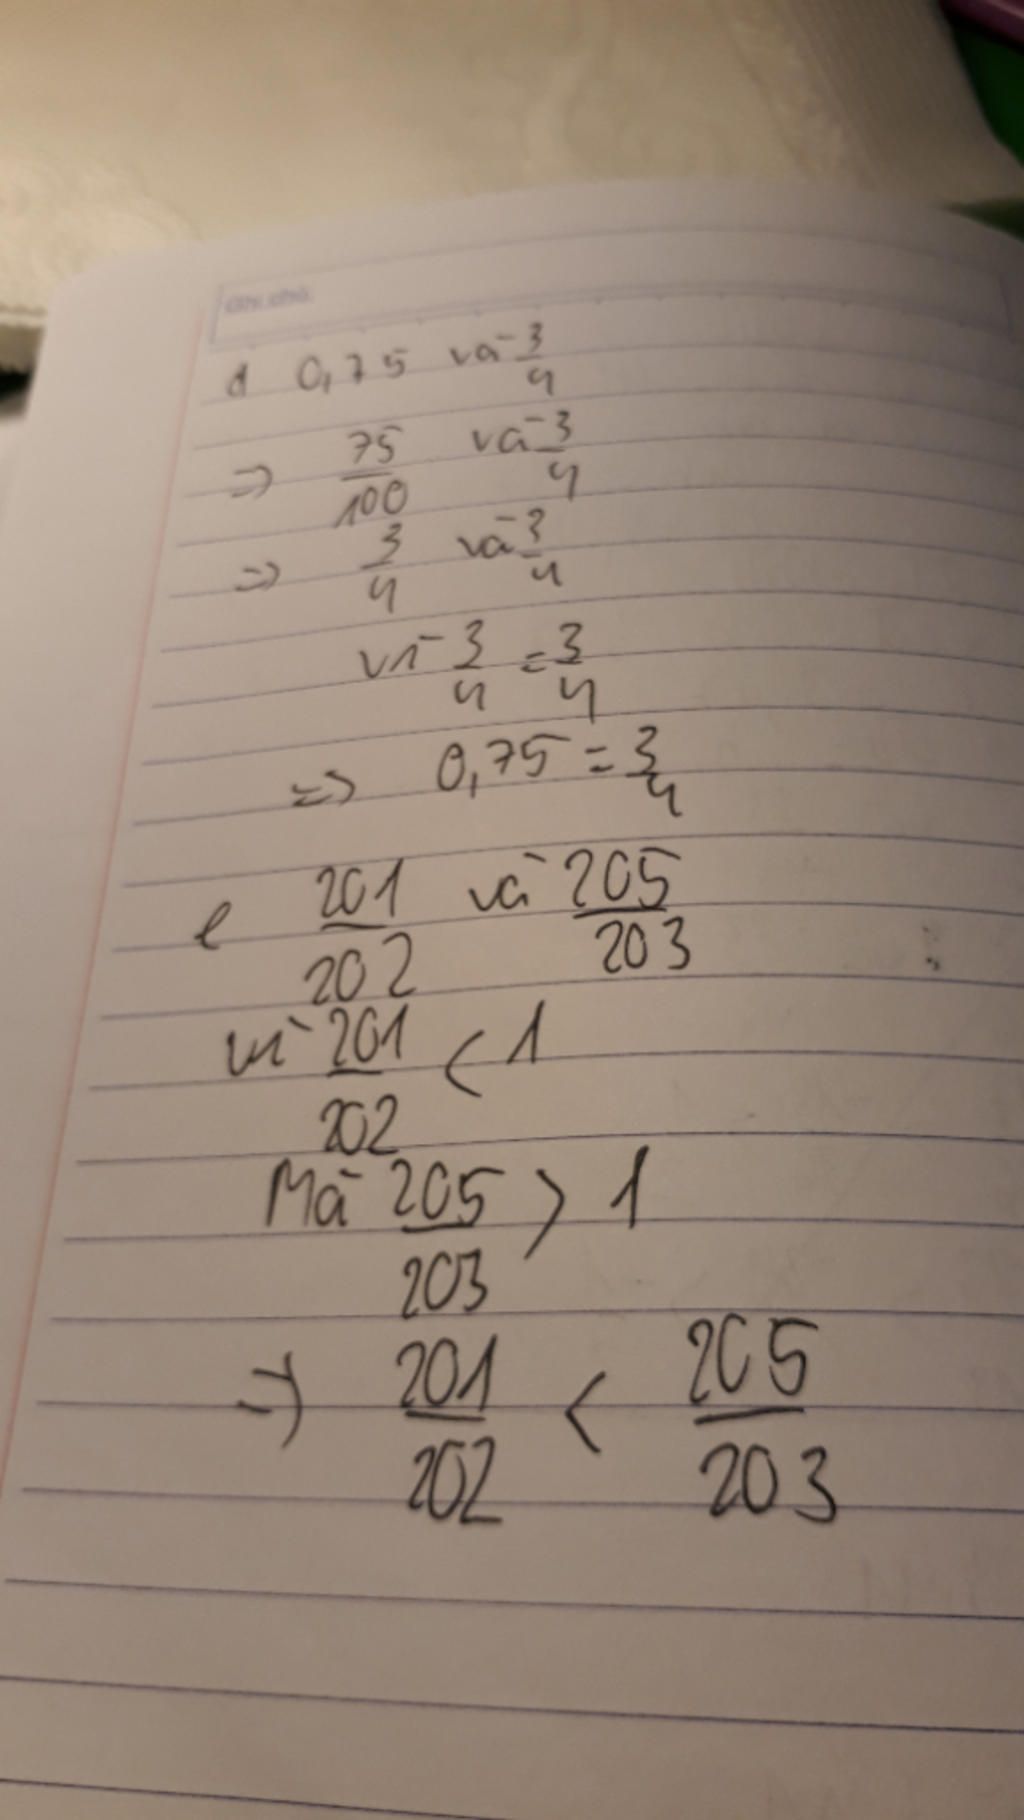 Ghi chú:
d 0,75 và 3/4
=> 75/100 và 3/4
=> 3/4 và 3/4
vì 3/4 = 3/4
=> 0,75 = 3/4
e 201/202 và 205/203
vì 201/202 < 1
Mà 205/203 > 1
=> 201/202 < 205/203